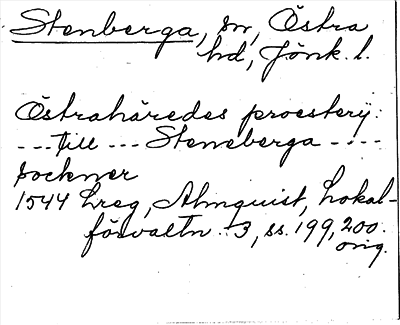 Stenberga, sn, Östra
hd, Jönk. l.
Östrahäredes proestery:
--- till --- Steneberga ----
sockner
1544 Lreg, Almquist, Lokal-
förvaltn. 3, ss. 199, 200.
orig.